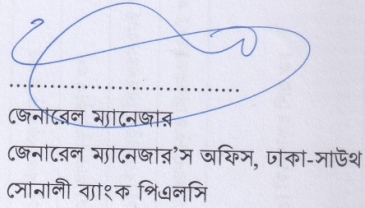 জেনারেল ম্যানেজার
জেনারেল ম্যানেজার’স অফিস, ঢাকা-সাউথ
সোনালী ব্যাংক পিএলসি